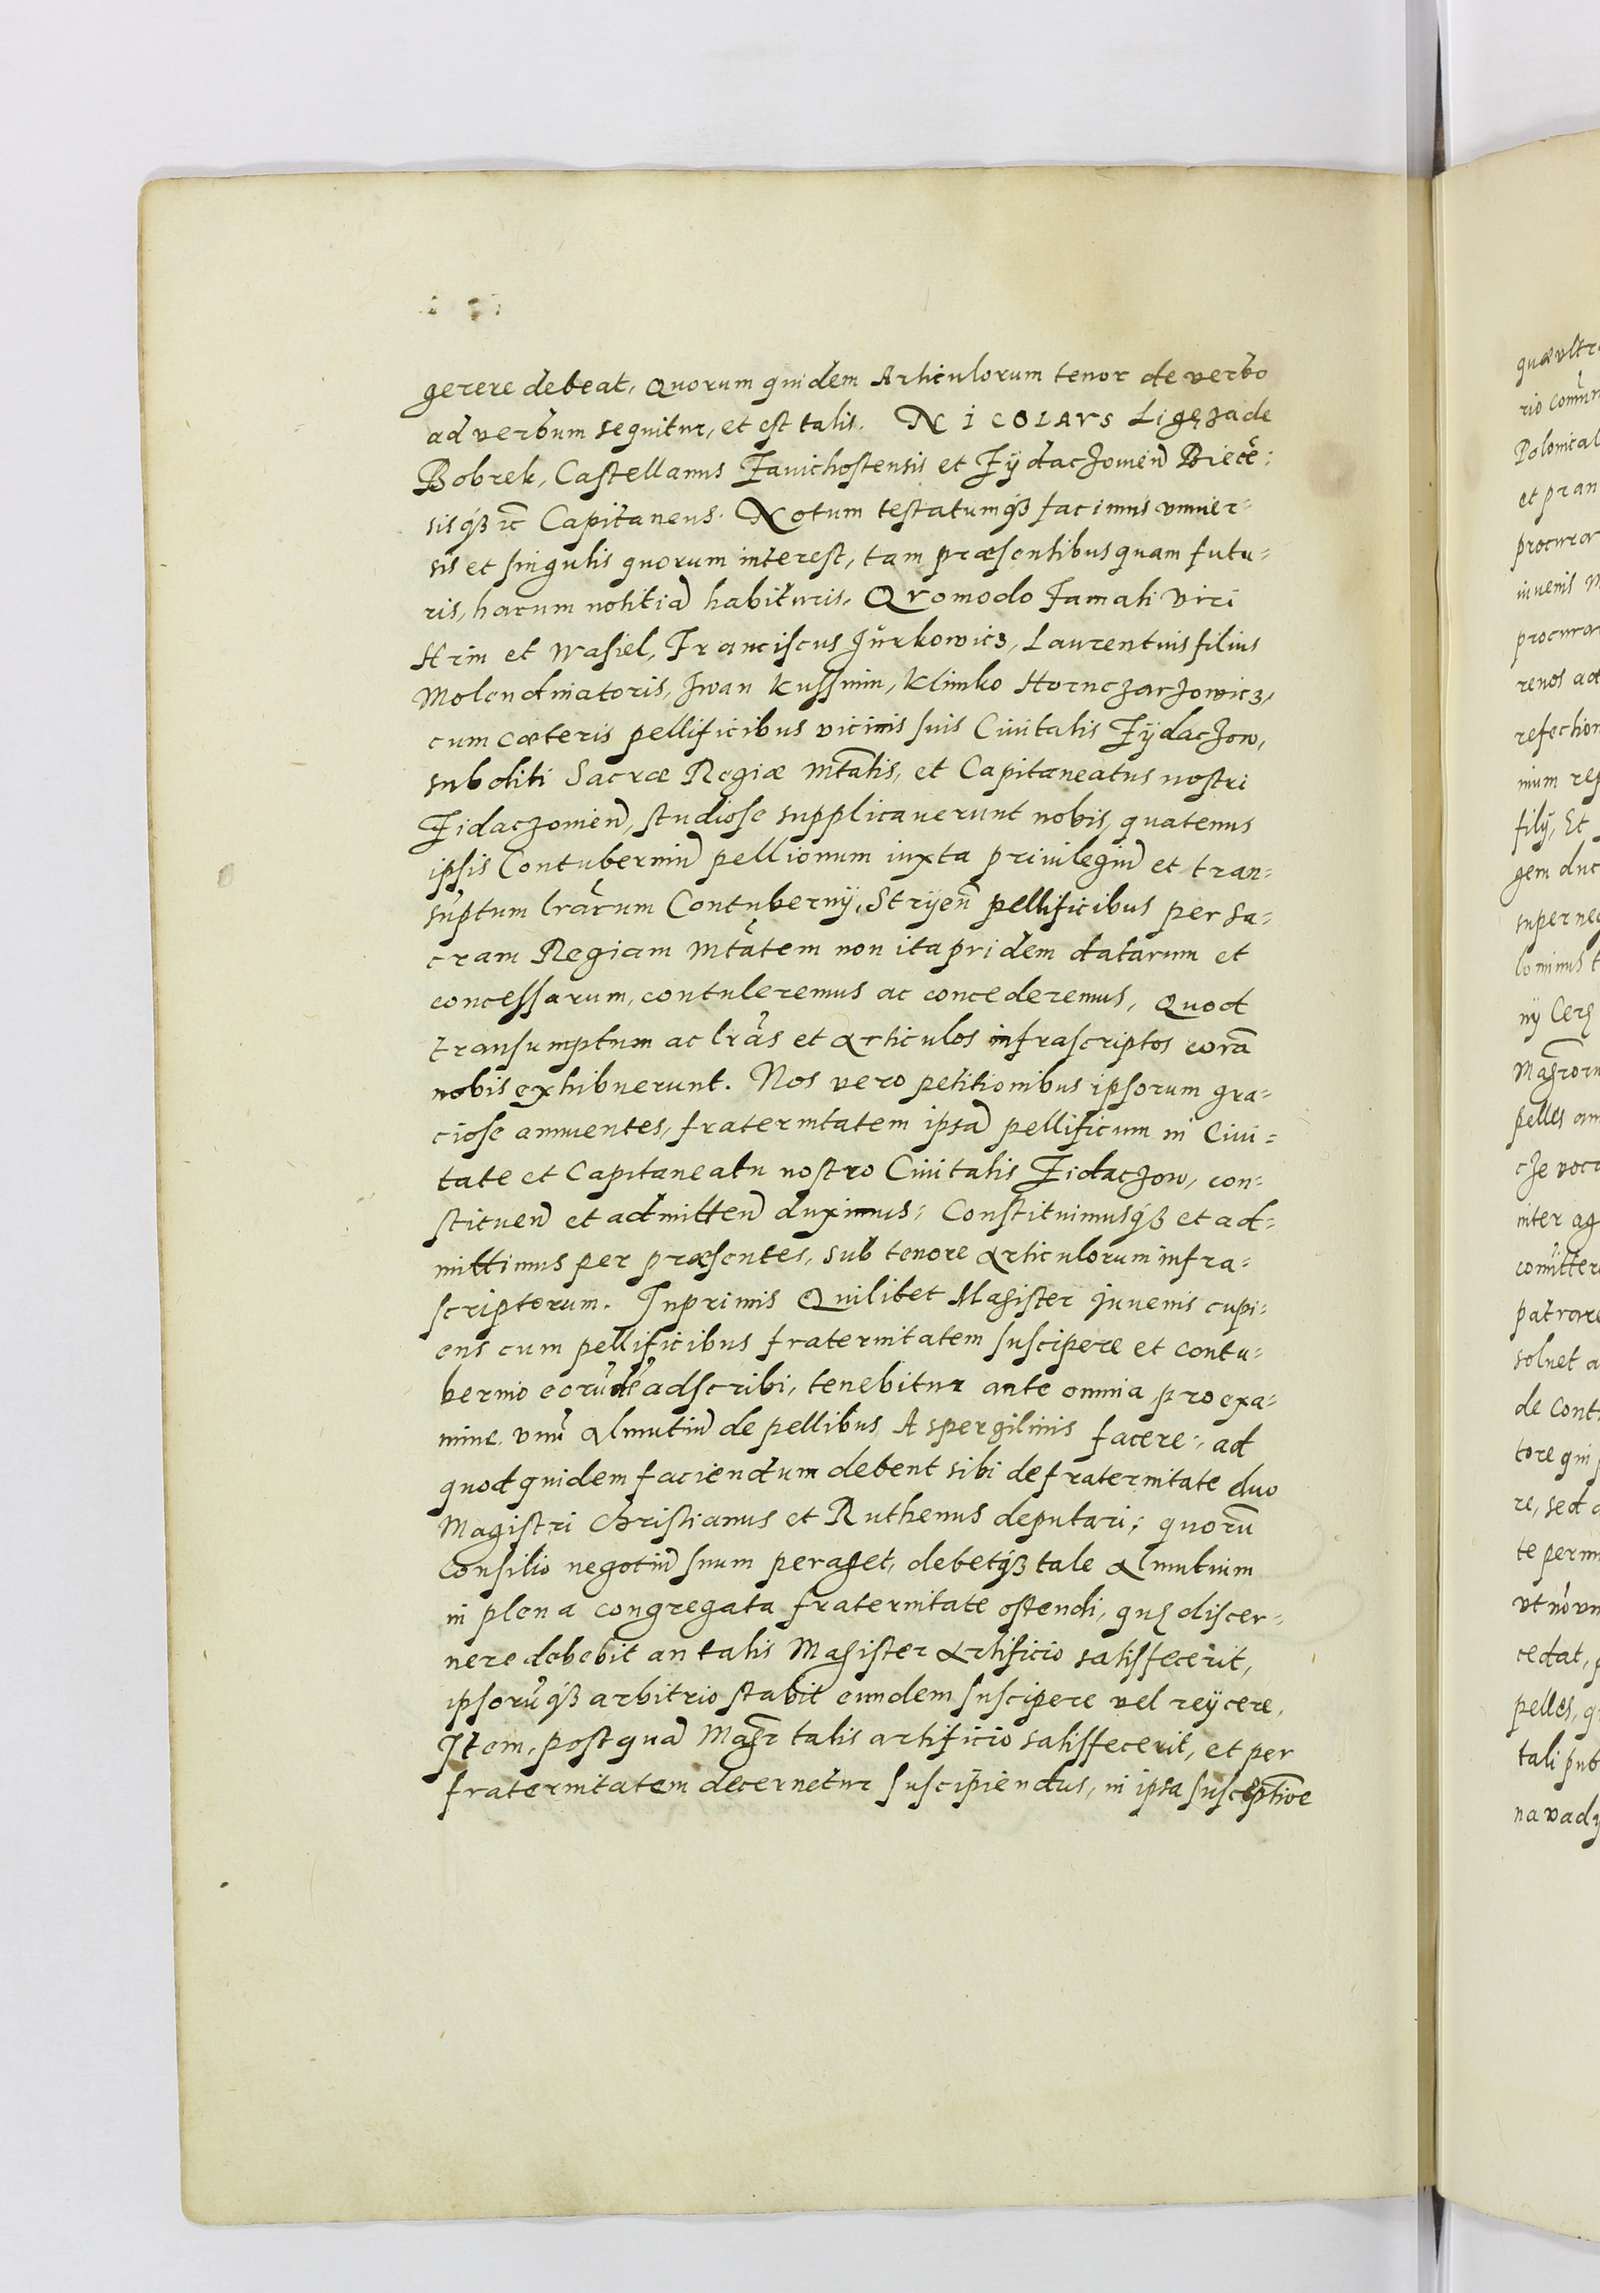 gerere debeat, Quorum quidem Articulorum tenor de verbo
ad verbum sequitur, et est talis. NICOLAVS Ligęza de
Bobrek, Castellanus Zavichostensis et Zÿdaczouien̄ Biecē:
sisqȝ ꝛc Capitaneus. Notum testatumqȝ facimus vniuer-
sis et singulis quorum interest, tam præsentibus quam futu-
ris, harum notitiā habituris. Qvomodo Famati viri
Hrin et Wasiel, Franciscus Jurkowicz, Laurentius filius
Molendinatoris, Jwan Kussnin, Klimko Hornczarzowicz,
cum cæteris pellificibus vicinis suis Ciuitatis Zÿdaczow,
subditi Sacræ Regiæ Mtatis, et Capitaneatus nostri
Zidaczouien̄, studiose supplicauerunt nobis, quatenus
ipsis Contuberniū pellionum iuxta priuilegiū et tran-
sūptum lrārum Contubernÿ, Strÿen̄ pellificibus per Sa-
cram Regiam Mtātem non ita pridem datarum et
concessarum, contuleremus ac concederemus, Quod
transumptum ac lrās et articulos infrascriptos corā
nobis exhibuerunt. Nos vero petitionibus ipsorum gra-
ciose annuentes, fraternitatem ipsā pellificum in Ciui-
tate et Capitaneatu nostro Ciuitatis Zidaczow, con-
stituen̄ et admitten̄ duximus; Constituimusqȝ et ad-
mittimus per præsentes, sub tenore articulorum infra-
scriptorum. Inprimis Quilibet Magister Juuenis cupi-
ens cum pellificibus fraternitatem suscipere et contu-
bernio eorūdē adscribi, tenebitur ante omnia pro exa-
mine vnū almutiū de pellibus Aspergilinis facere: ad
quod quidem faciendum debent sibi de fraternitate duo
Magistri Christianus et Ruthenus deputari; quorū
Consilio negotiū suum peraget, debetqȝ tale almutium
in plena congregata fraternitate ostendi, quę discer-
nere debebit an talis Magister artificio satisfecerit,
ipsorūqȝ arbitrio stabit eundem suscipere vel reÿcere,
Item, postquā Magr talis artificio satisfecerit, et per
fraternitatem decernetur suscipiendus, in ipsa susceptione